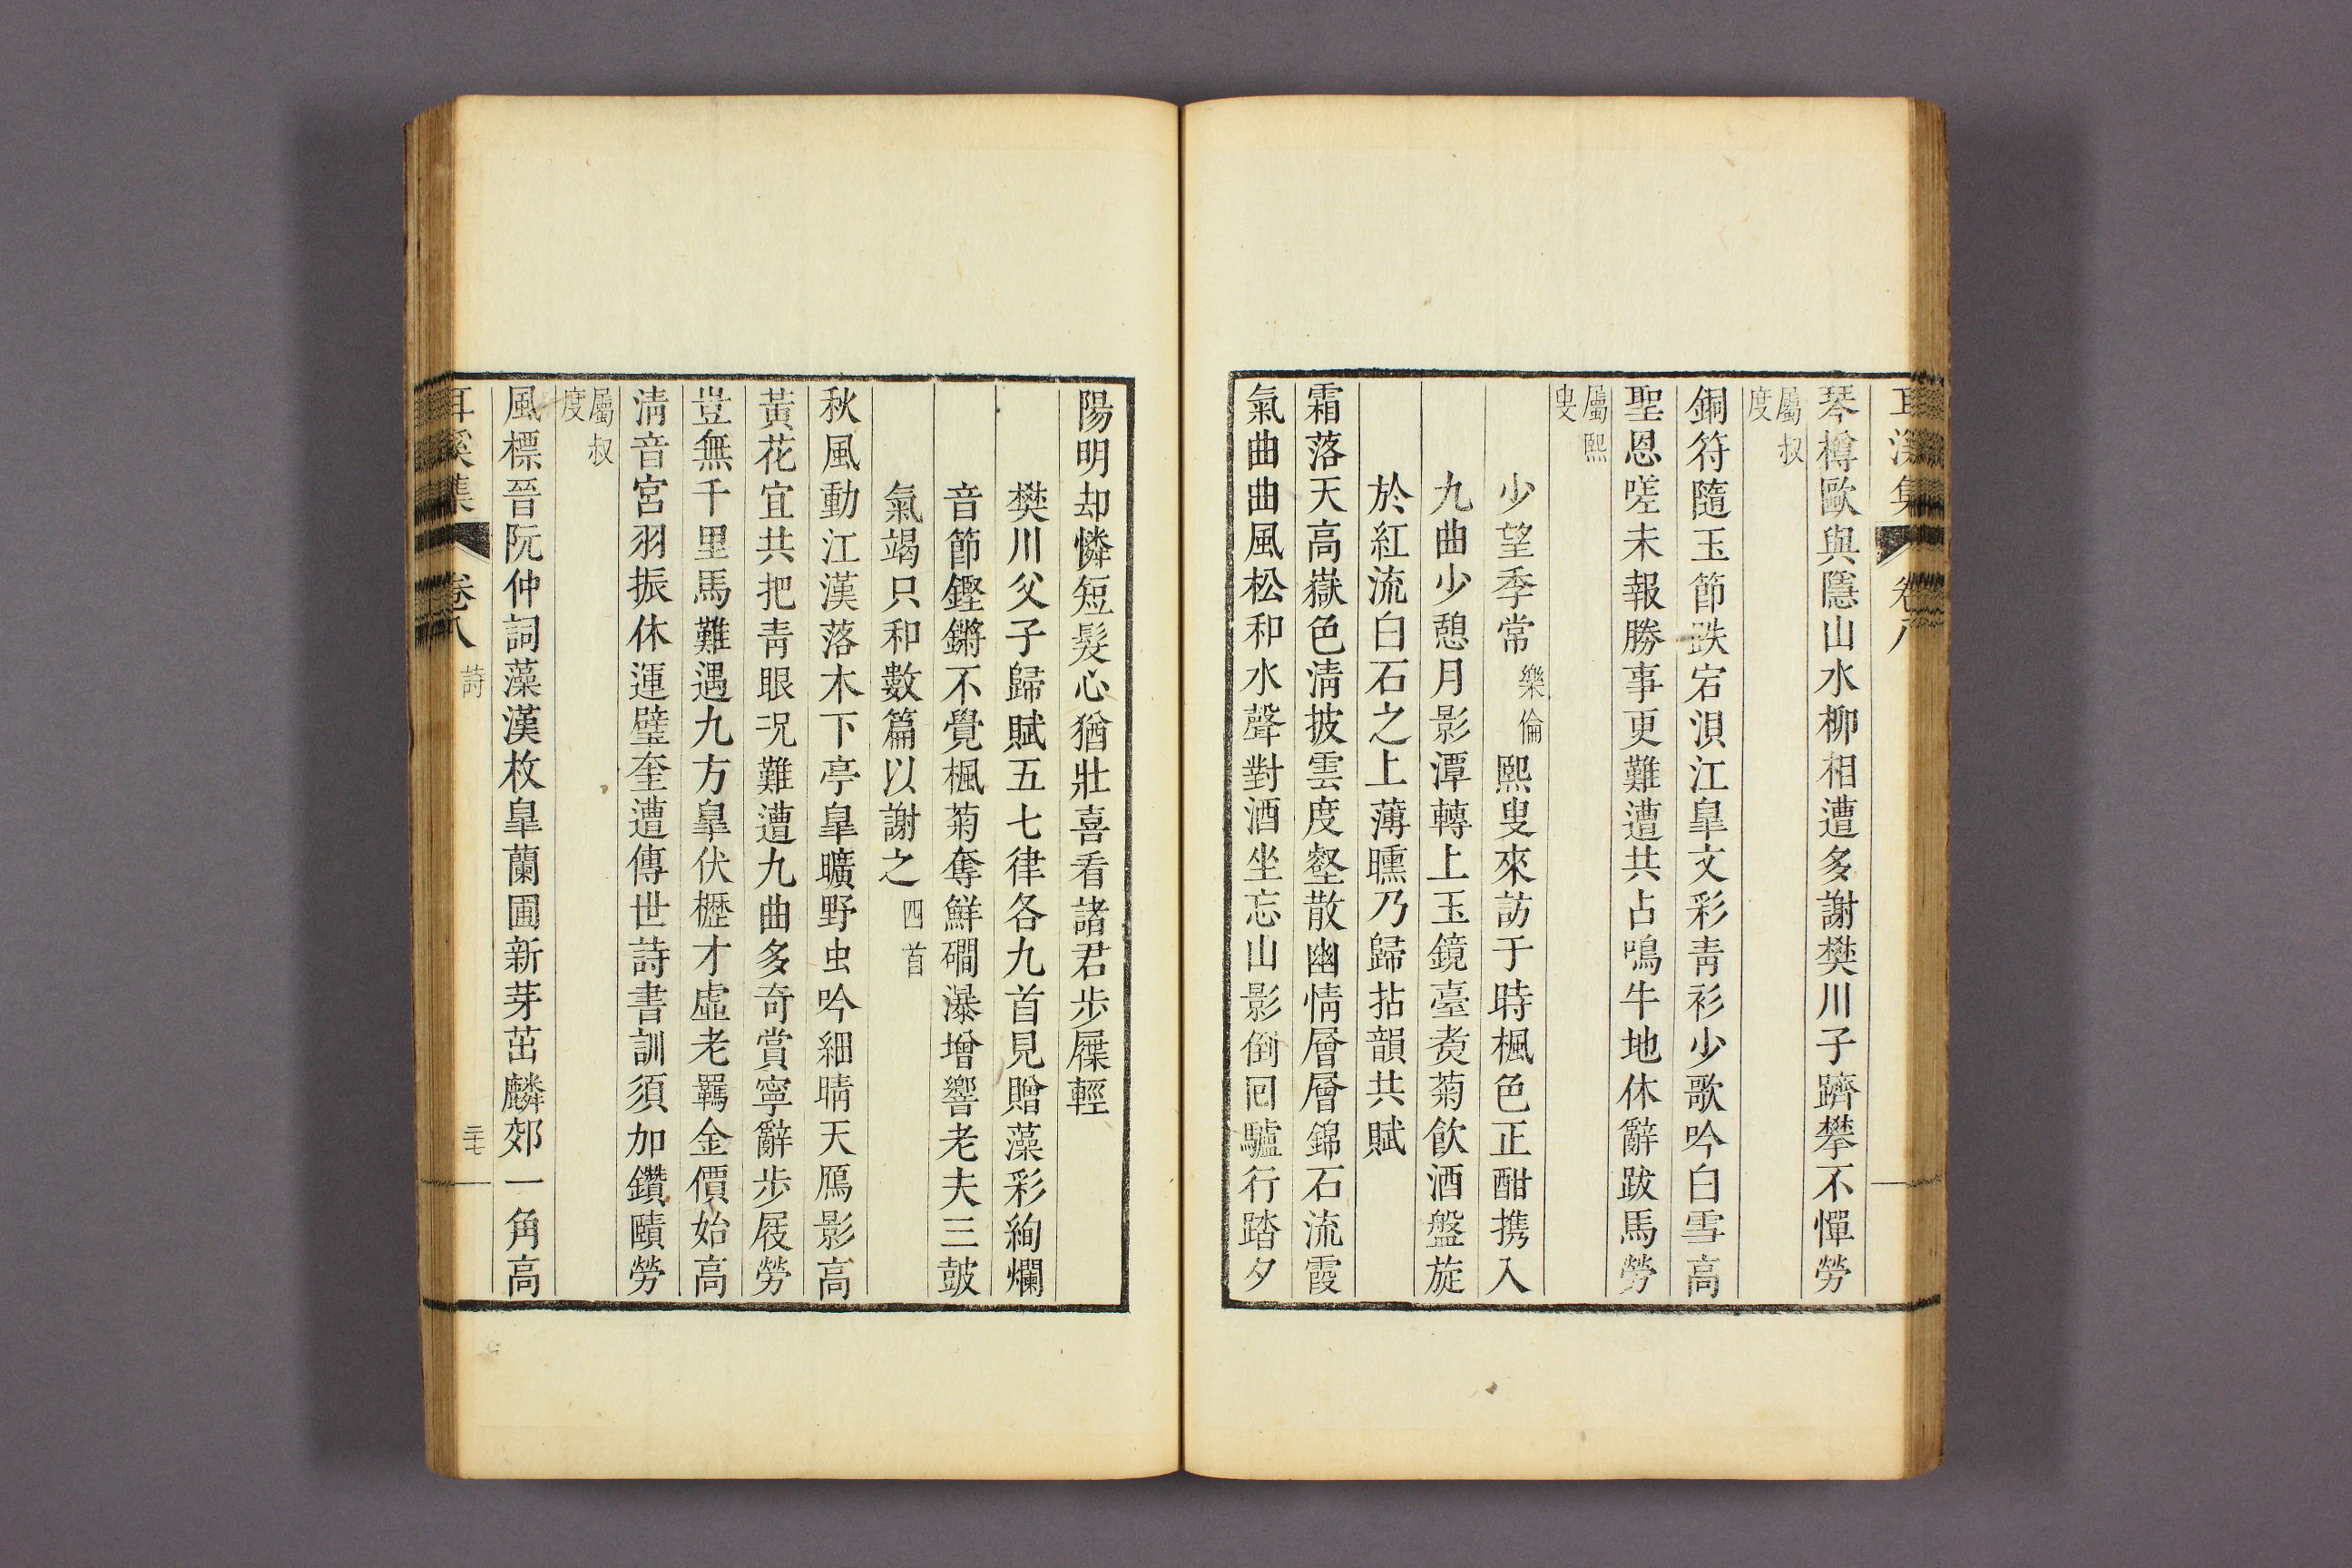 耳溪集 卷八
琴樽歐與隱山水柳相遭多謝樊川子躋攀不憚勞
屬叔度
銅符隨玉節跌宕浿江臯文彩靑衫少歌吟白雪高
聖恩嗟未報勝事更難遭共占鳴牛地休辭跋馬勞
屬熙叟
少望季常樂倫熙叟來訪于時楓色正酣携入
九曲少憩月影潭轉上玉鏡臺煑菊飮酒盤旋
於紅流白石之上薄曛乃歸拈韻共賦
霜落天高嶽色淸披雲度壑散幽情層層錦石流霞
氣曲曲風松和水聲對酒坐忘山影倒回驢行踏夕
陽明却憐短髮心猶壯喜看諸君步屧輕
樊川父子歸賦五七律各九首見贈藻彩絢爛
音節鏗鏘不覺楓菊奪鮮磵瀑增響老夫三皷
氣竭只和數篇以謝之四首
秋風動江漢落木下亭臯曠野虫吟細晴天鴈影高
黃花宜共把靑眼况難遭九曲多奇賞寧辭步屐勞
豈無千里馬難遇九方臯伏櫪才虛老羈金價始高
淸音宮羽振休運璧奎遭傳世詩書訓須加鑽賾勞
屬叔度
風標晉阮仲詞藻漢枚臯蘭圃新芽茁麟郊一角高
耳溪集 卷八 詩 二十七